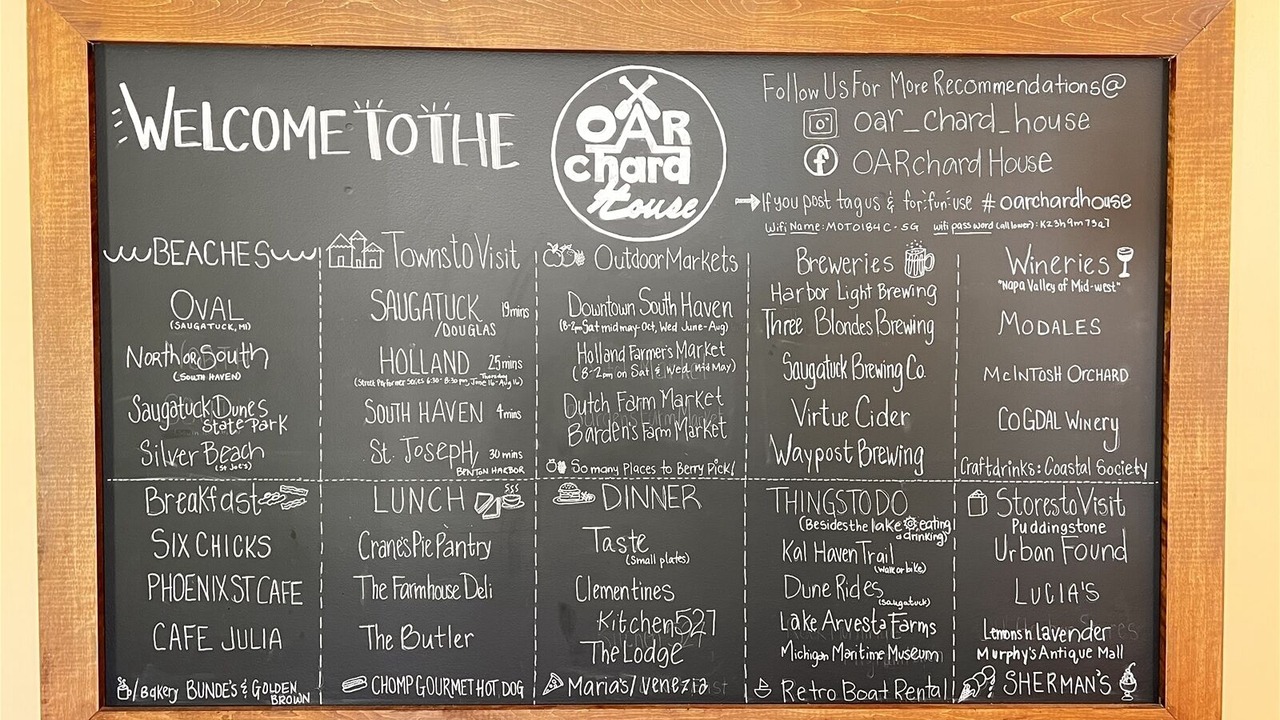 WELCOME TO THE
OAR
chard
House
Follow Us For More Recommendations @
oar_chard_house
OARchard House
If you post tag us & for fun use #oarchardhouse
Wifi Name: MOTO184C-5G wifi password (all lower): K23h9m73q7
BEACHES
OVAL
(SAUGATUCK, MI)
North or South
(SOUTH HAVEN)
Saugatuck Dunes
State Park
Silver Beach
(St Joe's)
Towns to Visit
SAUGATUCK 19 mins
/DOUGLAS
HOLLAND 25 mins
(Street Performer Series 6:30-8:30 pm, Thursday June 16-Aug 16)
SOUTH HAVEN 4 mins
St. Joseph, 30 mins
BENTON HARBOR
Outdoor Markets
Downtown South Haven
(8-2pm Sat mid may-Oct, Wed June-Aug)
Holland Farmer's Market
(8-2pm on Sat & Wed mid May)
Dutch Farm Market
Barden's Farm Market
So many Places to Berry Pick!
Breweries
Harbor Light Brewing
Three Blondes Brewing
Saugatuck Brewing Co.
Virtue Cider
Waypost Brewing
Wineries
"Napa Valley of Mid-west"
MODALES
McINTOSH ORCHARD
COGDAL Winery
Craft drinks: Coastal Society
Breakfast
SIX CHICKS
PHOENIX ST CAFE
CAFE JULIA
/Bakery BUNDE'S & GOLDEN
BROWN
LUNCH
Crane's Pie Pantry
The Farmhouse Deli
The Butler
CHOMP GOURMET HOT DOG
DINNER
Taste
(Small plates)
Clementines
Kitchen 527
The Lodge
Maria's/Venezia
THINGS TO DO
(Besides the lake eating
& drinking)
Kal Haven Trail
(walk or bike)
Dune Rides
(Saugatuck)
Lake Arvesta Farms
Michigan Maritime Museum
Retro Boat Rental
Stores to Visit
Puddingstone
Urban Found
LUCIA'S
Lemons n lavender
Murphy's Antique Mall
SHERMAN'S